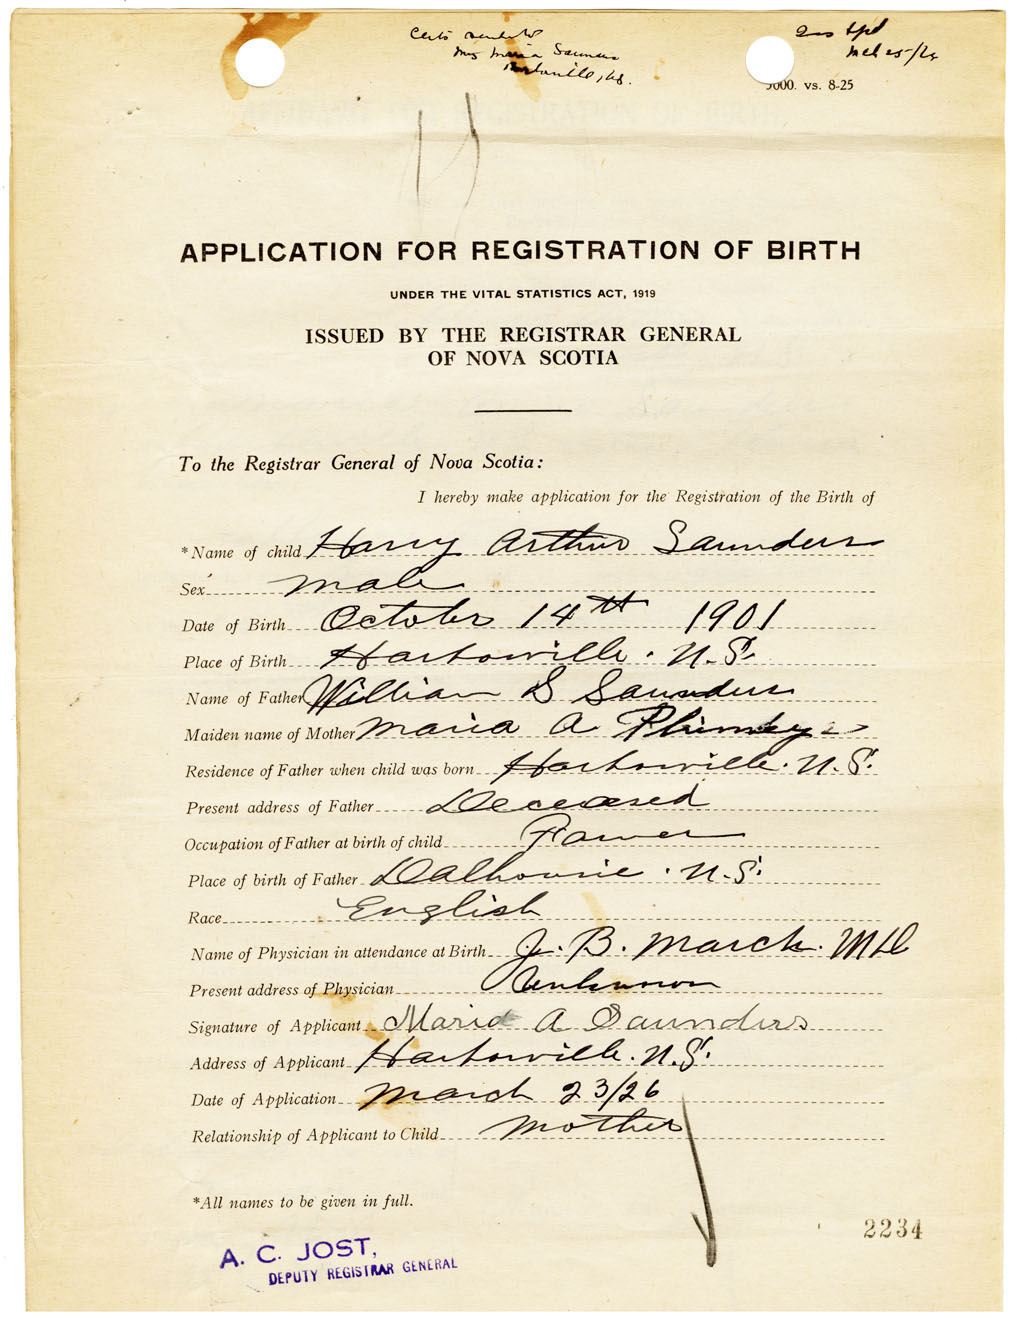 Mrs Maria Saunders
Harborville, N.S.
Mch 25/26
5000. vs. 8-25
APPLICATION FOR REGISTRATION OF BIRTH
UNDER THE VITAL STATISTICS ACT, 1919
ISSUED BY THE REGISTRAR GENERAL
OF NOVA SCOTIA
To the Registrar General of Nova Scotia:
I hereby make application for the Registration of the Birth of
*Name of child Harry Arthur Saunders
Sex male
Date of Birth October 14th 1901
Place of Birth Harborville. N.S.
Name of Father William S Saunders
Maiden name of Mother Maria A
Residence of Father when child was born Harborville. N.S.
Present address of Father Deceased
Occupation of Father at birth of child Farmer
Place of birth of Father Dalhousie. N.S.
Race English
Name of Physician in attendance at Birth J. B. March. MD
Present address of Physician Unknown
Signature of Applicant Maria A Saunders
Address of Applicant Harborville. N.S.
Date of Application March 23/26
Relationship of Applicant to Child Mother
*All names to be given in full.
2234
A. C. JOST,
DEPUTY REGISTRAR GENERAL